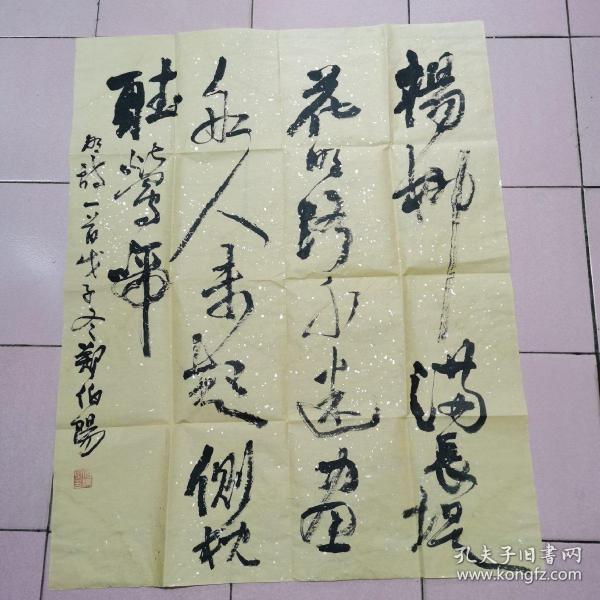 楊柳滿長堤
花明路不迷畫
船人未起側枕
聽鶯啼
明詩一首戊子冬鄭伯陽
孔夫子旧书网
www.kongfz.com